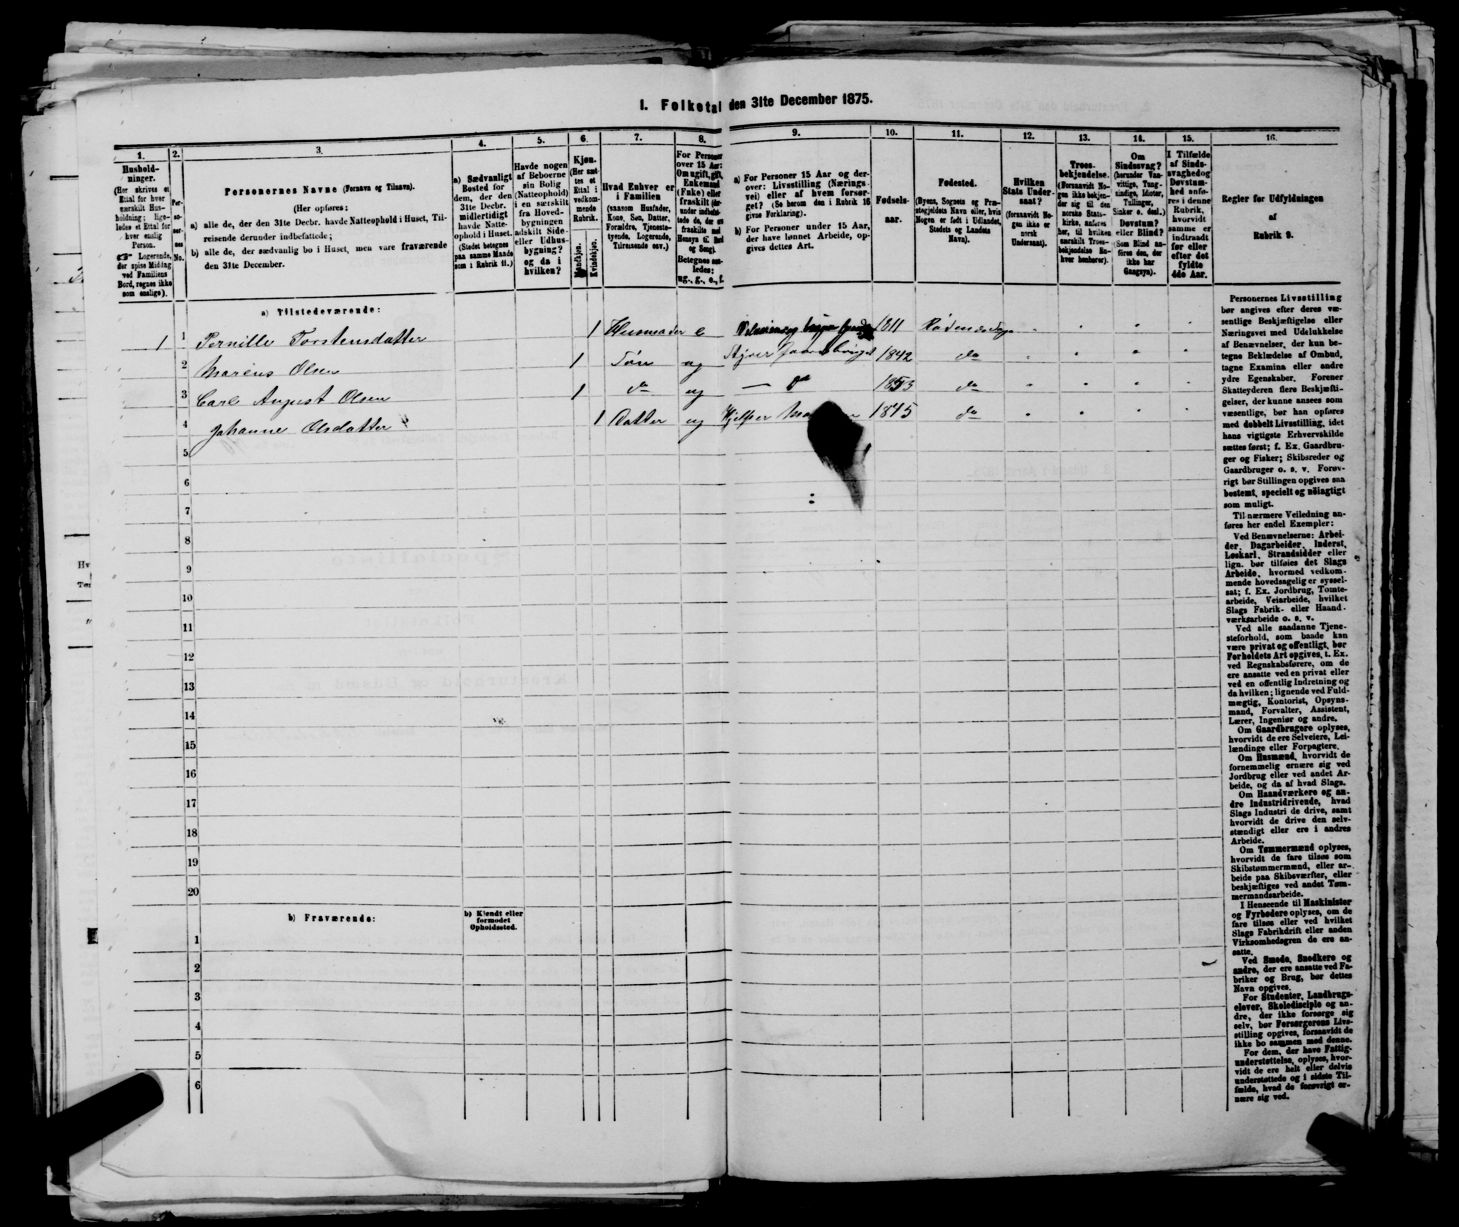 I. Folketal den 31te December 1875.
1. 2. 3. 4. 5. 6. 7. 8. 9. 10. 11. 12. 13. 14. 15. 16.
Hushold-
ninger.
(Her skrives et
Ettal for hver
særskilt Hus-
holdning; lige-
ledes et Ettal for
hver enslig
Person.
Logerende,
der spise Middag
ved Familiens
Bord, regnes ikke
som enslige).
Per-
so-
ner-
nes
No.
Personernes Navne (Fornavn og Tilnavn).
(Her opføres:
a) alle de, der den 31te Decbr. havde Natteophold i Huset, Til-
reisende derunder indbefattede;
b) alle de, der sædvanlig bo i Huset, men vare fraværende
den 31te December.
a) Sædvanligt
Bosted for
dem, der den
31te Decbr.
midlertidigt
havde Natte-
ophold i Huset.
(Stedet betegnes
paa samme Maade
som i Rubrik 11.)
Havde nogen
af Beboerne
sin Bolig
(Natteophold)
i en særskilt
fra Hoved-
bygningen
adskilt Side-
eller Udhus-
bygning?
og da i
hvilken?
Kjøn.
(Her sæt-
tes et
Ettal i
vedkom-
mende
Rubrik.
Mandkjøn.
Kvindekjøn.
Hvad Enhver er
i Familien
(saasom Husfader,
Kone, Søn, Datter,
Forældre, Tjeneste-
tyende, Logerende,
Tilreisende osv.)
For Personer
over 15 Aar:
Om ugift, gift,
Enkemand
(Enke) eller
fraskilt
Betegnes saa-
ledes:
ug., g., e., f.
a) For Personer 15 Aar og der-
over: Livsstilling (Nærings-
vei) eller af hvem forsør-
get? (Se herom den i Rubrik 16
givne Forklaring).
b) For Personer under 15 Aar,
der have lønnet Arbeide, op-
gives dettes Art.
Fødsels-
aar.
Fødested.
(Byens, Sognets og Præ-
stegjeldets Navn eller, hvis
Nogen er født i Udlandet,
Stedets og Landets
Navn).
Hvilken
Stats Under-
saat?
(forsaavidt No-
gen ikke er
norsk
Undersaat).
Troes-
bekjendelse.
(Forsaavidt No-
gen ikke bekjen-
der sig til den
norske Stats-
kirke, anføres
her, til hvilken
særskilt Troes-
bekjendelse En-
hver henhører).
Om
Sindssvag?
(herunder Van-
vittige, Tung-
sindige, Idioter,
Tullinger,
Sinker o. desl.)
Døvstum?
eller Blind?
(Som Blind an-
føres den, der
ikke har
Gangsyn).
I Tilfælde
af Sinds-
svaghed og
Døvstum-
hed anfø-
res i denne
Rubrik,
hvorvidt
samme er
indtraadt
før eller
efter det
fyldte
4de Aar.
Regler for Udfyldningen
af
Rubrik 9.
a) Tilstedeværende:
1 1 Pernille Torstensdatter 1 Husmoder e 1811
2 Marius Olsen 1 Søn ug 1842 do
3 Carl August Olsen 1 do ug — do 1853 do
4 Johanne Olsdatter 1 Datter ug Hjelper 1845 do
5
6
7
8
9
10
11
12
13
14
15
16
17
18
19
20
b) Fraværende: b) Kjendt eller
formodet
Opholdssted.
1
2
3
4
5
6
Personernes Livsstilling
bør angives efter deres væ-
sentlige Beskjæftigelse eller
Næringsvei med Udelukkelse
af Benævnelser, der kun be-
tegne Beklædelse af Ombud,
tagne Examina eller andre
ydre Egenskaber. Forener
Skatteyderen flere Beskjæfti-
gelser, der kunne ansees som
væsentlige, bør han opføres
med dobbelt Livsstilling, idet
hans vigtigste Erhvervskilde
sættes først; f. Ex. Gaardbru-
ger og Fisker; Skibsreder og
Gaardbruger o. s. v. Forøv-
rigt bør Stillingen opgives saa
bestemt, specielt og nøiagtigt
som muligt.
Til nærmere Veiledning an-
føres her endel Exempler:
Ved Benævnelserne: Arbei-
der, Dagarbeider, Inderst,
Løskarl, Strandsidder eller
lign. bør tilføies det Slags
Arbeide, hvormed vedkom-
mende hovedsagelig er syssel-
sat; f. Ex. Jordbrug, Tomte-
arbeide, Veiarbeide, hvilket
Slags Fabrik- eller Haand-
værksarbeide o. s. v.
Ved alle saadanne Tjene-
steforhold, som baade kan
være privat og offentligt, bør
Forholdets Art opgives, t. Ex.
ved Regnskabsførere, om de
ere ansatte ved en privat eller
ved en offentlig Indretning og
da hvilken; lignende ved Fuld-
mægtig, Kontorist, Opsyns-
mand, Forvalter, Assistent,
Lærer, Ingeniør og andre.
Om Gaardbrugere oplyses,
hvorvidt de ere Selveiere, Lei-
lændinge eller Forpagtere.
Om Husmænd, hvorvidt de
fornemmelig ernære sig ved
Jordbrug eller ved andet Ar-
beide, og da af hvad Slags.
Om Haandværkere og an-
dre Industridrivende, hvad
Slags Industri de drive, samt
hvorvidt de drive den selv-
stændigt eller ere i andres
Arbeide.
Om Tømmermænd oplyses,
hvorvidt de fare tilsøs som
Skibstømmermænd, eller ar-
beide paa Skibsværfter, eller
beskjæftiges ved andet Tøm-
mermandsarbeide.
I Henseende til Maskinister
og Fyrbødere oplyses, om de
fare tilsøs eller ved hvilket
Slags Fabrikdrift eller anden
Virksomhedsgren de ere an-
satte.
Ved Smede, Snedkere og
andre, der ere ansatte ved Fa-
briker og Brug, bør dettes
Navn opgives.
For Studenter, Landbrugs-
elever, Skoledisciple og an-
dre, der ikke forsørge sig
selv, bør Forsørgerens Livs-
stilling opgives, forsaavidt de
ikke bo sammen med denne.
For dem, der have Fattig-
understøttelse, oplyses, hvor-
vidt de ere helt eller delvis
understøttede og i sidste Til-
fælde, hvad de forøvrigt er-
nære sig ved.